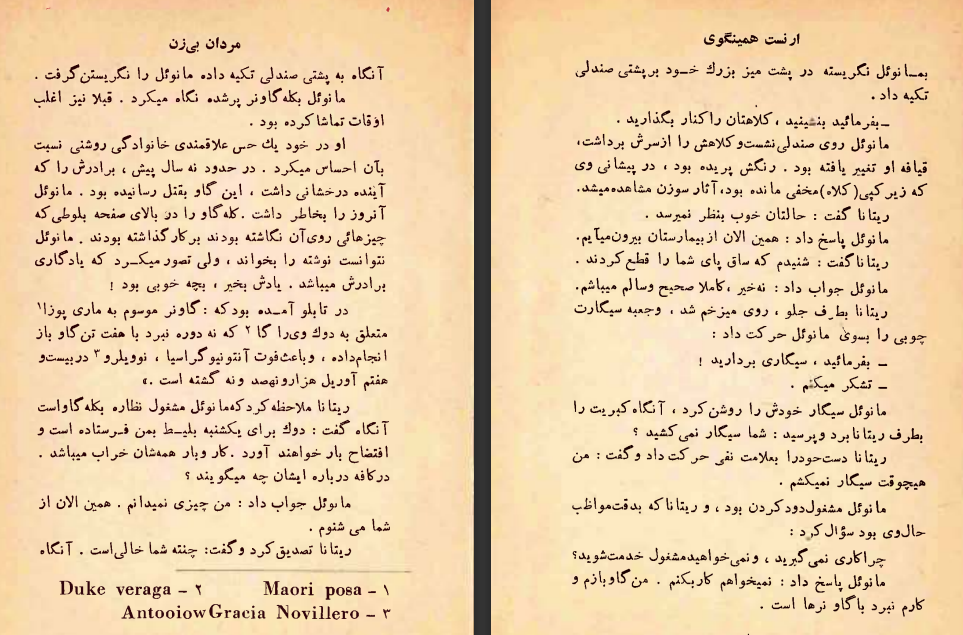 ارنست همینگوی
بمـانوئل نگریسته در پشت میز بزرك خـود برپشتی صندلی
تکیه داد .
ـ بفرمائید بنشینید ، کلاهتان را کنار بگذارید .
مانوئل روی صندلی نشست و کلاهش را ازسرش برداشت،
قیافه او تغییر یافته بود . رنگش پریده بود ، در پیشانی وی
که زیر کپی(کلاه)مخفی مانده بود، آثار سوزن مشاهده میشد.
ریتانا گفت : حالتان خوب بنظر نمیرسد .
مانوئل پاسخ داد : همین الان ازبیمارستان بیرون میآیم.
ریتانا گفت : شنیدم که ساق پای شما را قطع کردند .
مانوئل جواب داد : نه خیر ، کاملا صحیح وسالم میباشم.
ریتانا بطرف جلو ، روی میزخم شد ، وجعبه سیگارت
چوبی را بسوی مانوئل حرکت داد :
ـ بفرمائید ، سیگاری بردارید !
ـ تشکر میکنم .
مانوئل سیگار خودش را روشن کرد ، آنگاه کبریت را
بطرف ریتانا برد و پرسید : شما سیگار نمی کشید ؟
ریتانا دست خودرا بعلامت نفی حرکت داد و گفت : من
هیچوقت سیگار نمیکشم .
مانوئل مشغول دود کردن بود ، و ریتانا که بدقت مواظب
حال وی بود سؤال کرد :
چرا کاری نمی گیرید ، و نمی خواهید مشغول خدمت شوید؟
مانوئل پاسخ داد : نمیخواهم کار بکنم . من گاوبازم و
کارم نبرد با گاو نرها است .
مردان بی‌زن
آنگاه به پشتی صندلی تکیه داده مانوئل را نگریستن گرفت .
مانوئل بکله گاونر پرشده نگاه میکرد . قبلا نیز اغلب
اوقات تماشا کرده بود .
او در خود یك حس علاقمندی خانوادگی روشنی نسبت
بآن احساس میکرد . در حدود نه سال پیش ، برادرش را که
آینده درخشانی داشت ، این گاو بقتل رسانیده بود . مانوئل
آنروز را بخاطر داشت . کله گاو را در بالای صفحه بلوطی که
چیزهائی روی آن نگاشته بودند بر کار گذاشته بودند . مانوئل
نتوانست نوشته را بخواند ، ولی تصور میکـرد که یادگاری
برادرش میباشد . یادش بخیر ، بچه خوبی بود !
در تابلو آمـده بود که : گاونر موسوم به ماری پوزا۱
متعلق به دوك وی‌را گا ۲ که نه دوره نبرد با هفت تن گاو باز
انجام داده ، و باعث فوت آنتونیو گراسیا ، نوویلرو ۳ دربیست‌و
هفتم آوریل هزارونهصد ونه گشته است .»
ریتانا ملاحظه کرد که مانوئل مشغول نظاره بکله گاواست
آنگاه گفت : دوك برای یکشنبه بلیـط بمن فـرستاده است و
افتضاح بار خواهند آورد . کار و بار همه‌شان خراب میباشد .
در کافه درباره ایشان چه میگویند ؟
مانوئل جواب داد : من چیزی نمیدانم . همین الان از
شما می شنوم .
ریتانا تصدیق کرد و گفت: چنته شما خالی است . آنگاه
۱ – Maori posa ۲ – Duke veraga
۳ – Antooiow Gracia Novillero